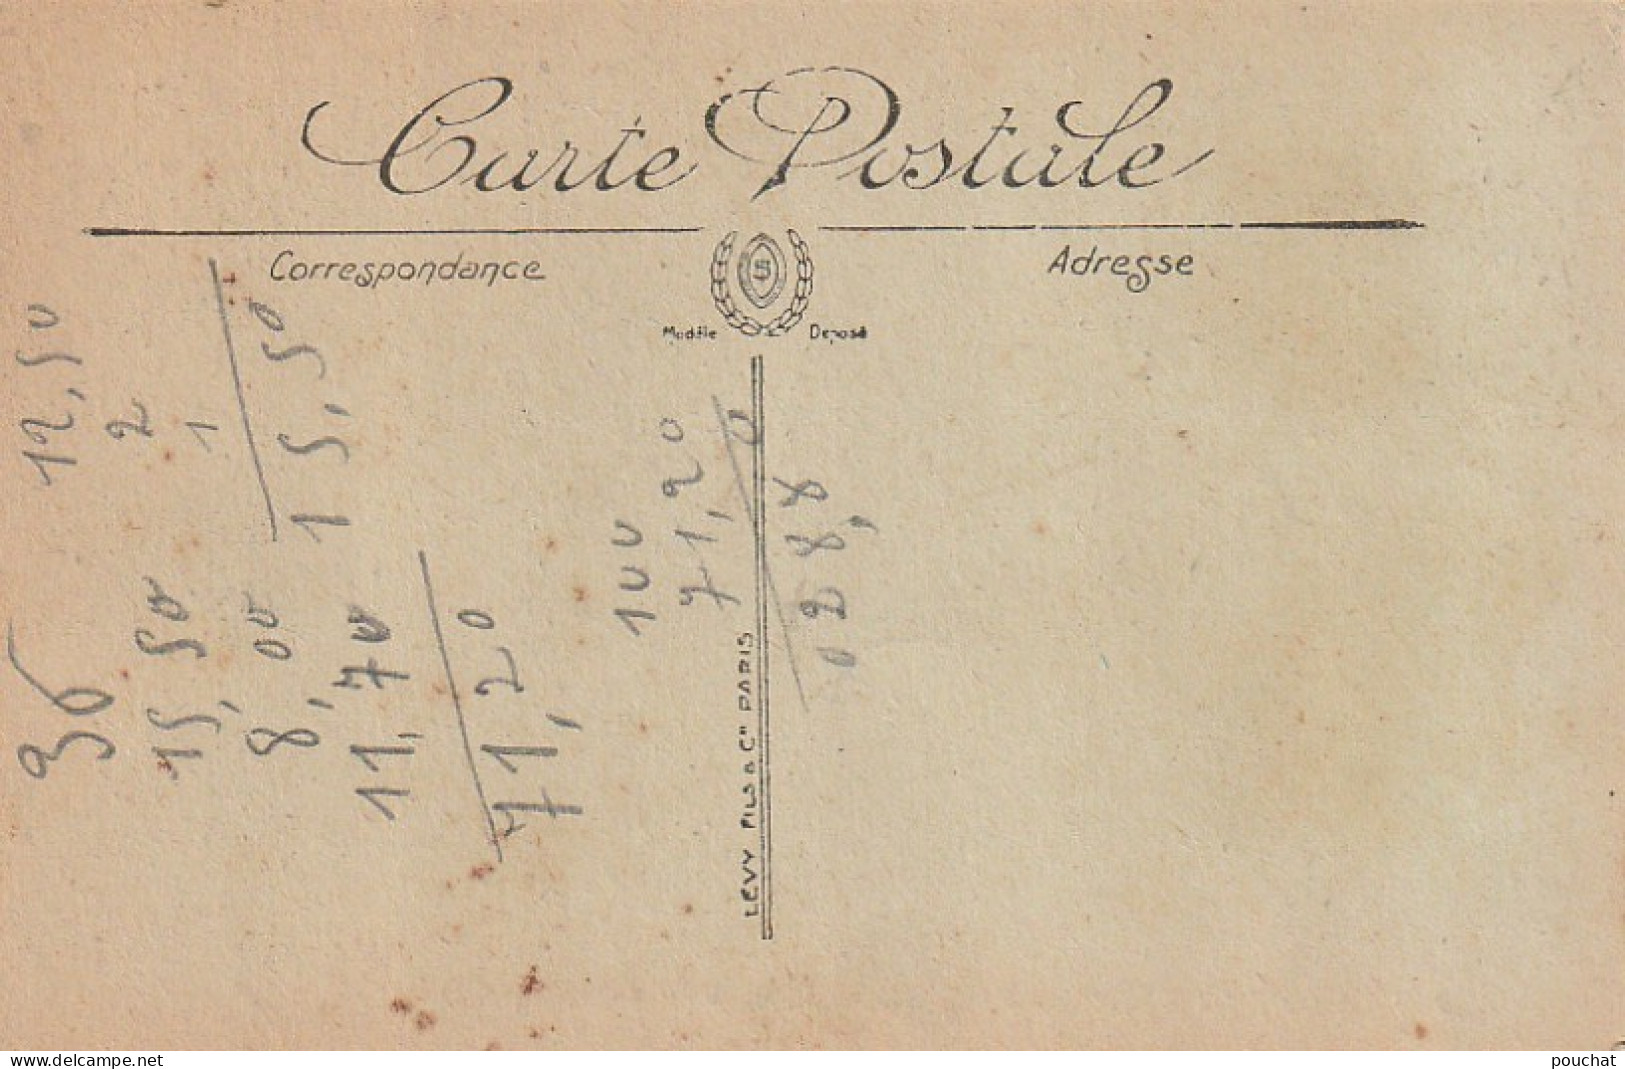 Carte Postale
Correspondance
Adresse
S
Modèle Deposé
LEVY FILS & Cie PARIS
12,50
2
1
15,50
36
15,50
8,00
11,70
71,20
100
71,20
0
028,8
www.delcampe.net
pouchat